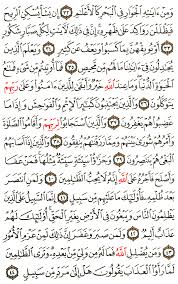 وَمِنْ ءَايَٰتِهِ ٱلْجَوَارِ فِى ٱلْبَحْرِ كَٱلْأَعْلَٰمِ ٣٢ إِن يَشَأْ يُسْكِنِ ٱلرِّيحَ
فَيَظْلَلْنَ رَوَاكِدَ عَلَىٰ ظَهْرِهِۦٓ إِنَّ فِى ذَٰلِكَ لَءَايَٰتٍ لِّكُلِّ صَبَّارٍ شَكُورٍ
٣٣ أَوْ يُوبِقْهُنَّ بِمَا كَسَبُوا۟ وَيَعْفُ عَن كَثِيرٍ ٣٤ وَيَعْلَمَ ٱلَّذِينَ
يُجَٰدِلُونَ فِىٓ ءَايَٰتِنَا مَا لَهُم مِّن مَّحِيصٍ ٣٥ فَمَآ أُوتِيتُم مِّن شَىْءٍ فَمَتَٰعُ
ٱلْحَيَوٰةِ ٱلدُّنْيَا وَمَا عِندَ ٱللَّهِ خَيْرٌ وَأَبْقَىٰ لِلَّذِينَ ءَامَنُوا۟ وَعَلَىٰ رَبِّهِمْ
يَتَوَكَّلُونَ ٣٦ وَٱلَّذِينَ يَجْتَنِبُونَ كَبَٰٓئِرَ ٱلْإِثْمِ وَٱلْفَوَٰحِشَ وَإِذَا مَا
غَضِبُوا۟ هُمْ يَغْفِرُونَ ٣٧ وَٱلَّذِينَ ٱسْتَجَابُوا۟ لِرَبِّهِمْ وَأَقَامُوا۟ ٱلصَّلَوٰةَ
وَأَمْرُهُمْ شُورَىٰ بَيْنَهُمْ وَمِمَّا رَزَقْنَٰهُمْ يُنفِقُونَ ٣٨ وَٱلَّذِينَ إِذَآ أَصَابَهُمُ
ٱلْبَغْىُ هُمْ يَنتَصِرُونَ ٣٩ وَجَزَٰٓؤُا۟ سَيِّئَةٍ سَيِّئَةٌ مِّثْلُهَا فَمَنْ عَفَا
وَأَصْلَحَ فَأَجْرُهُۥ عَلَى ٱللَّهِ إِنَّهُۥ لَا يُحِبُّ ٱلظَّٰلِمِينَ ٤٠ وَلَمَنِ ٱنتَصَرَ
بَعْدَ ظُلْمِهِۦ فَأُو۟لَٰٓئِكَ مَا عَلَيْهِم مِّن سَبِيلٍ ٤١ إِنَّمَا ٱلسَّبِيلُ عَلَى ٱلَّذِينَ
يَظْلِمُونَ ٱلنَّاسَ وَيَبْغُونَ فِى ٱلْأَرْضِ بِغَيْرِ ٱلْحَقِّ أُو۟لَٰٓئِكَ لَهُمْ
عَذَابٌ أَلِيمٌ ٤٢ وَلَمَن صَبَرَ وَغَفَرَ إِنَّ ذَٰلِكَ لَمِنْ عَزْمِ ٱلْأُمُورِ
٤٣ وَمَن يُضْلِلِ ٱللَّهُ فَمَا لَهُۥ مِن وَلِىٍّ مِّنۢ بَعْدِهِۦ وَتَرَى ٱلظَّٰلِمِينَ
لَمَّا رَأَوُا۟ ٱلْعَذَابَ يَقُولُونَ هَلْ إِلَىٰ مَرَدٍّ مِّن سَبِيلٍ ٤٤